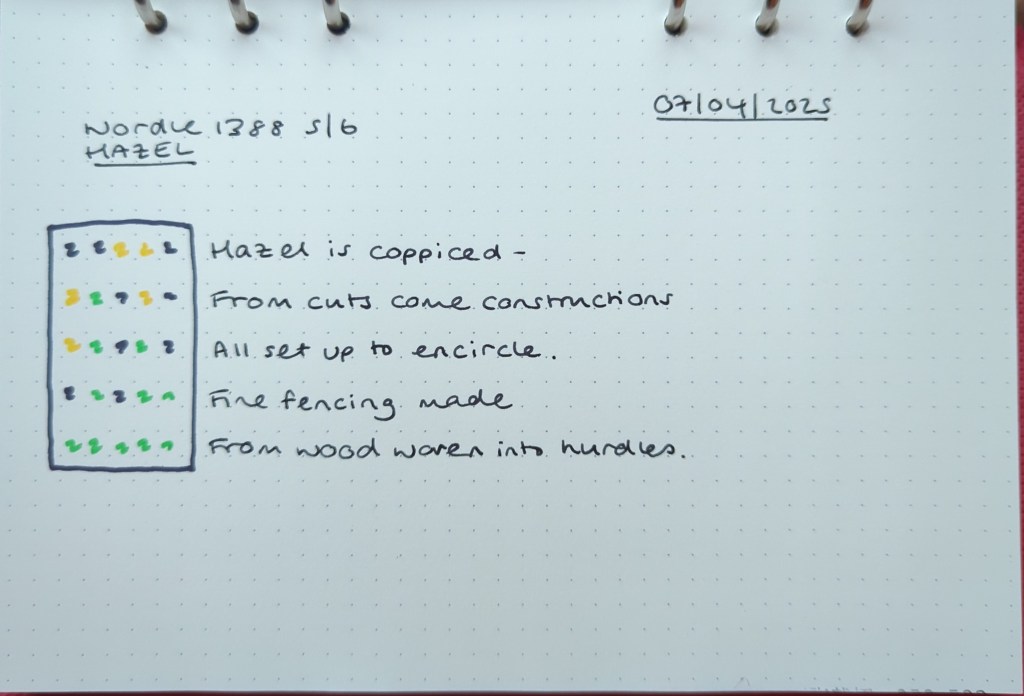 Wordle 1388 5/6
07/04/2025
HAZEL
Hazel is coppiced -
From cuts come constructions
All set up to encircle.
Fine fencing made
From wood woven into hurdles.